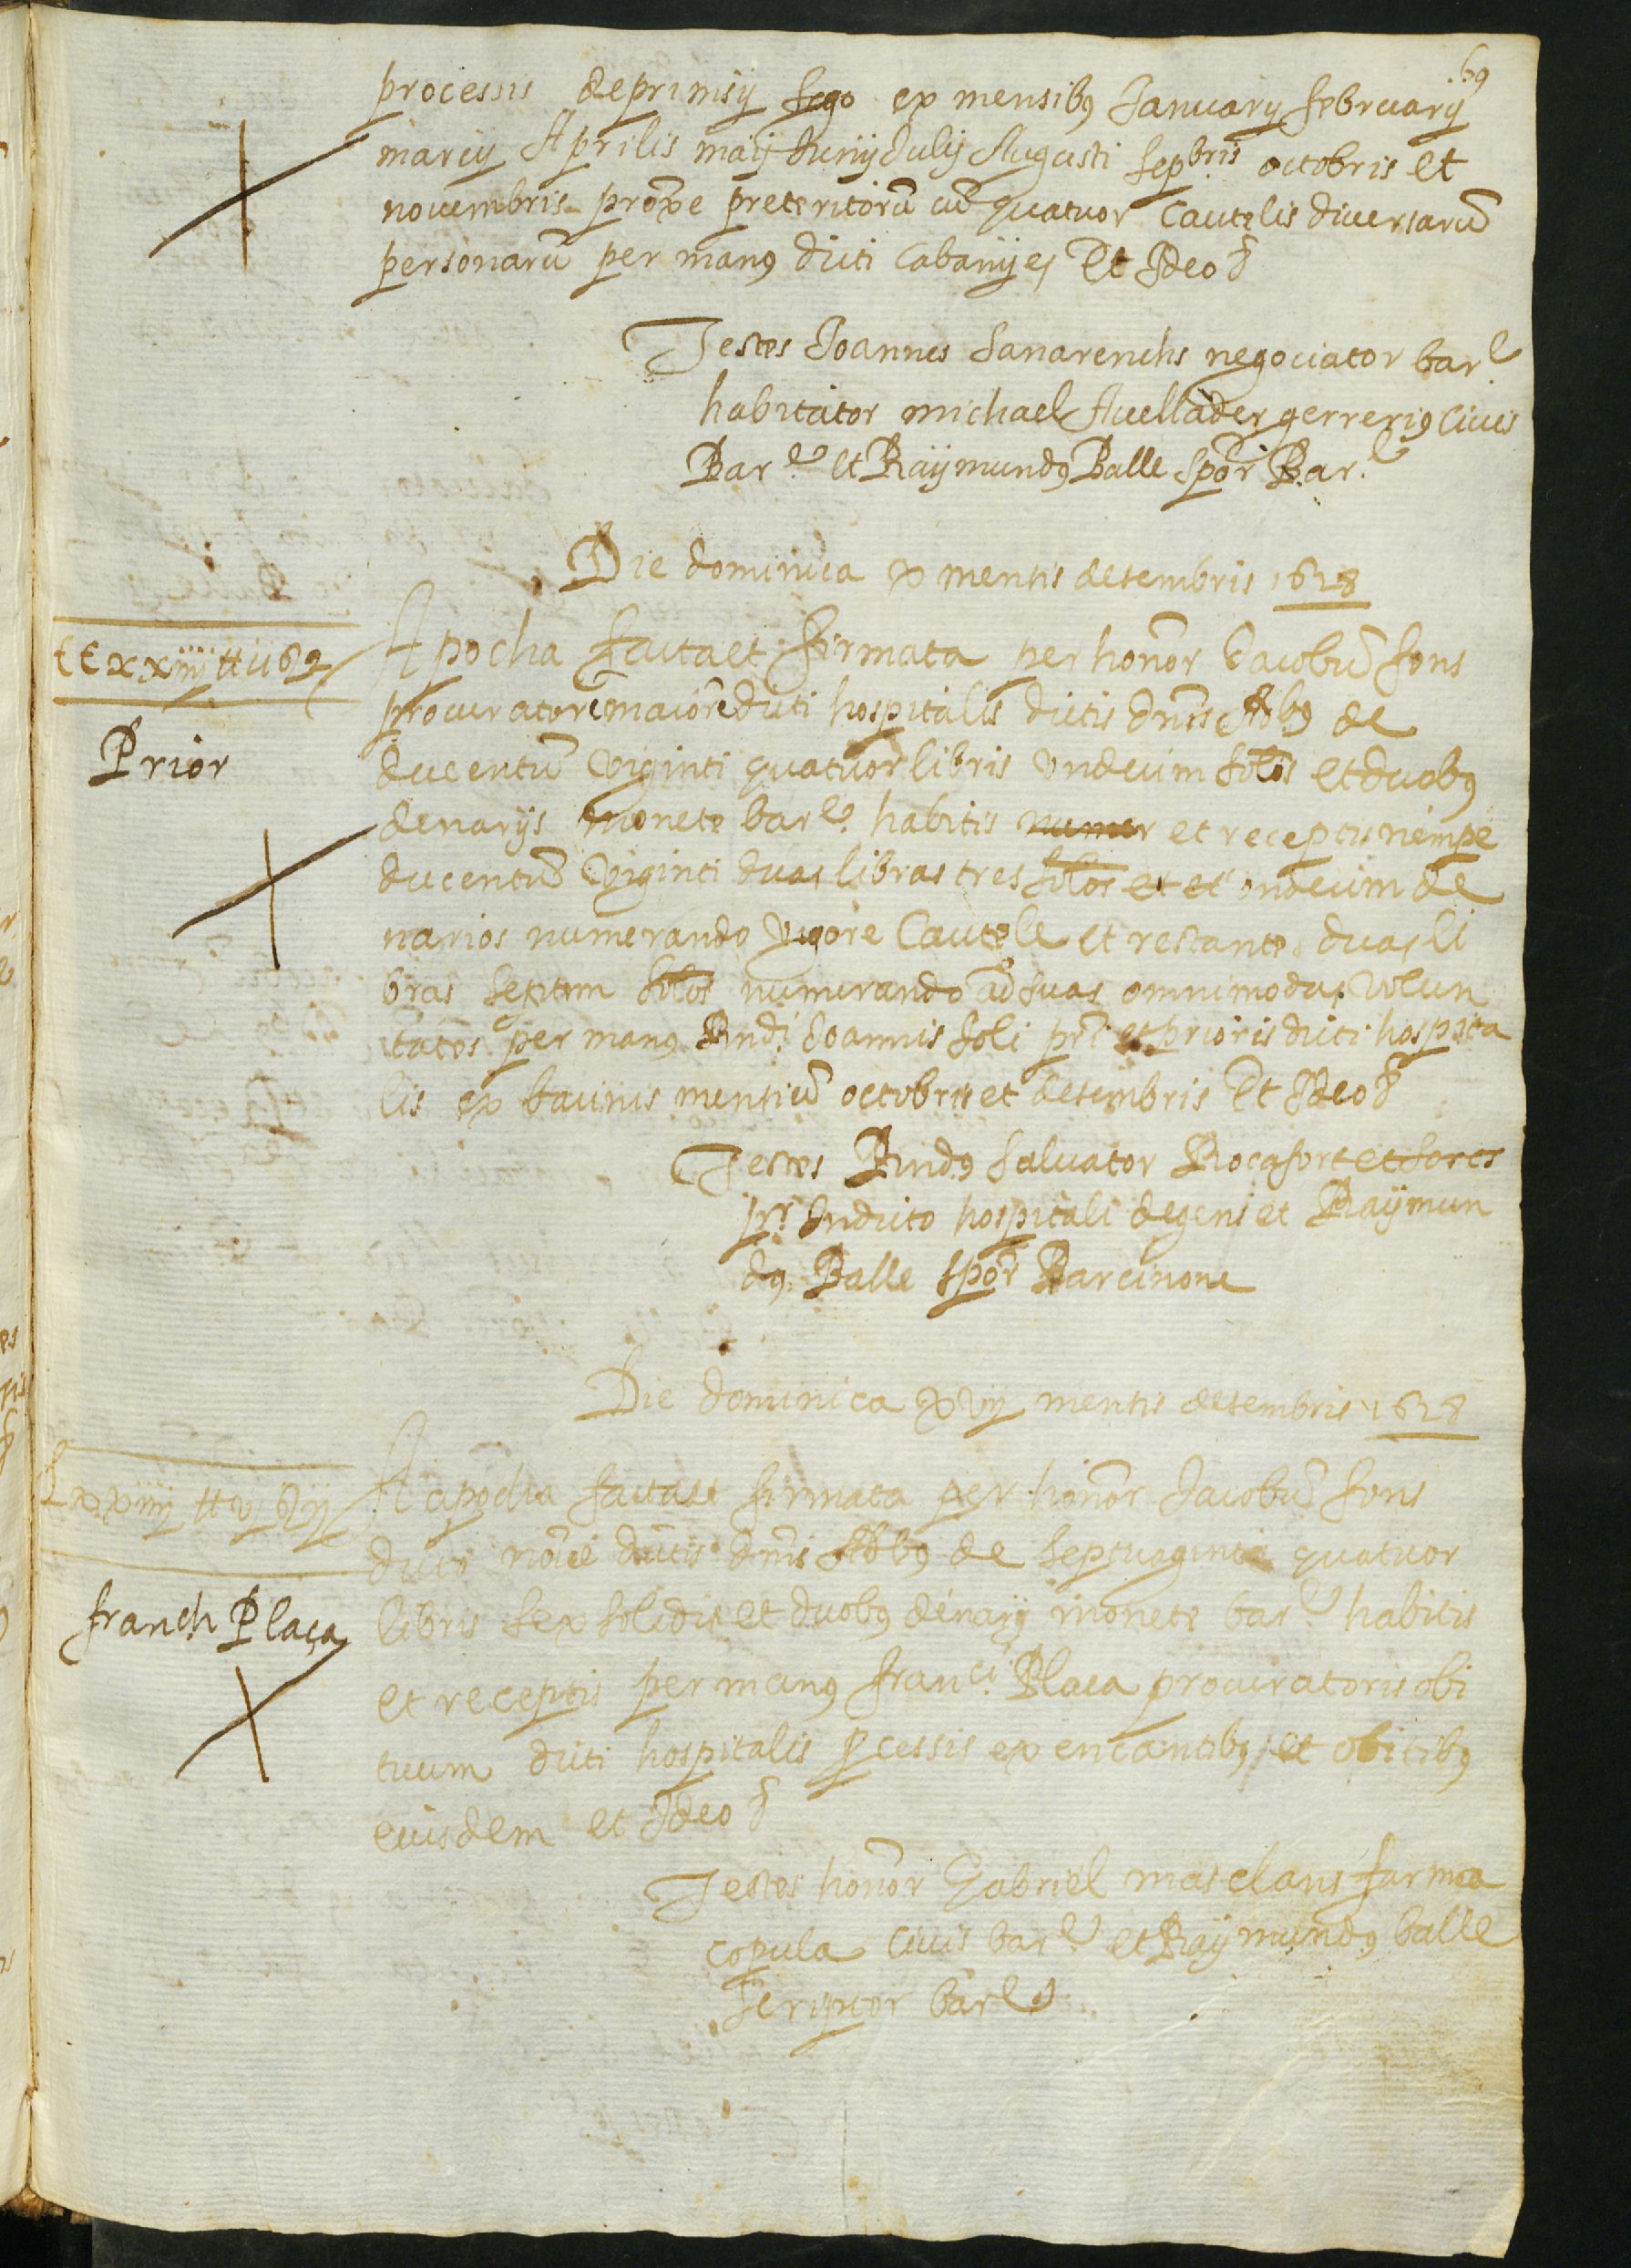 69
processis deprimsÿ sego ex mensibꝫ Januarÿ februarÿ
marcÿ Aprilis maÿ Junÿ Julÿ Augusti sepbris octobris et
nouembris proxē preteritorū cū quatuor Cautelis diuersarū
personarū per manꝫ dicti Cabanÿes Et Ideo
Testes Joannes Sanarenchs negociator barᵉ
habitator michael Auellader gerreriꝫ Ciuis
Barᵉ et Raÿmundꝫ Balle spōr Barᵉ
Die dominica x mensis desembris 1628
CCxxiiij ₶ xi ß 2
Apocha facta et firmata per honōr Jacobū fons
procuratorē maiorē dicti hospitalis dictis dn̄is Abꝫ de
Prior
ducentū Viginti quatuor libris Vndecim solis et duobꝫ
denarÿs monete barᵉ habitis numer et receptis nempe
ducentū Viginti duas libras tres solos et et ondecim de
narios numerando vigore Cautele et restantes duas li
bras septem solos numerando ad suas omnimodas Volun
tates per manꝫ Rndi Joannis Soli pri et prioris dicti hospita
lis ex bacinis mensiū octobris et desembris Et Ideo
Testes Rndꝫ Saluator Rocafort et Sores
pr̄r Indicto hospitali degens et Raÿmun
dꝫ Balle spōr Barcinone
Die dominica xvij mensis desembris 1628
Lxxiiij ₶ vj ß ij
A apocha facta et firmata per honōr Jacobū fons
dicti noīe dictis dn̄is Abbꝫ de septuaginta quatuor
franch Plaça
libris sex solidis et duobꝫ denarÿs monete barᵉ habitis
et receptis per manꝫ franci Plaça procuratoris obi
tuum dicti hospitalis ꝓcessis ex encantibꝫ et obitibꝫ
eiusdem et Ideo
Testes honōr Gabriel masclans farma
copula Ciuis barᵉ et Raÿmundꝫ balle
scriptor barᵉ